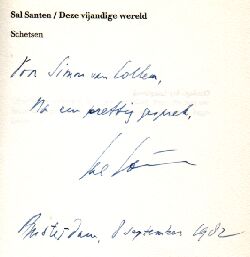 Sal Santen / Deze vijandige wereld
Schetsen
Voor Simon van Collem,
Na een prettig gesprek,
Sal Santen
Amsterdam, 8 september 1982